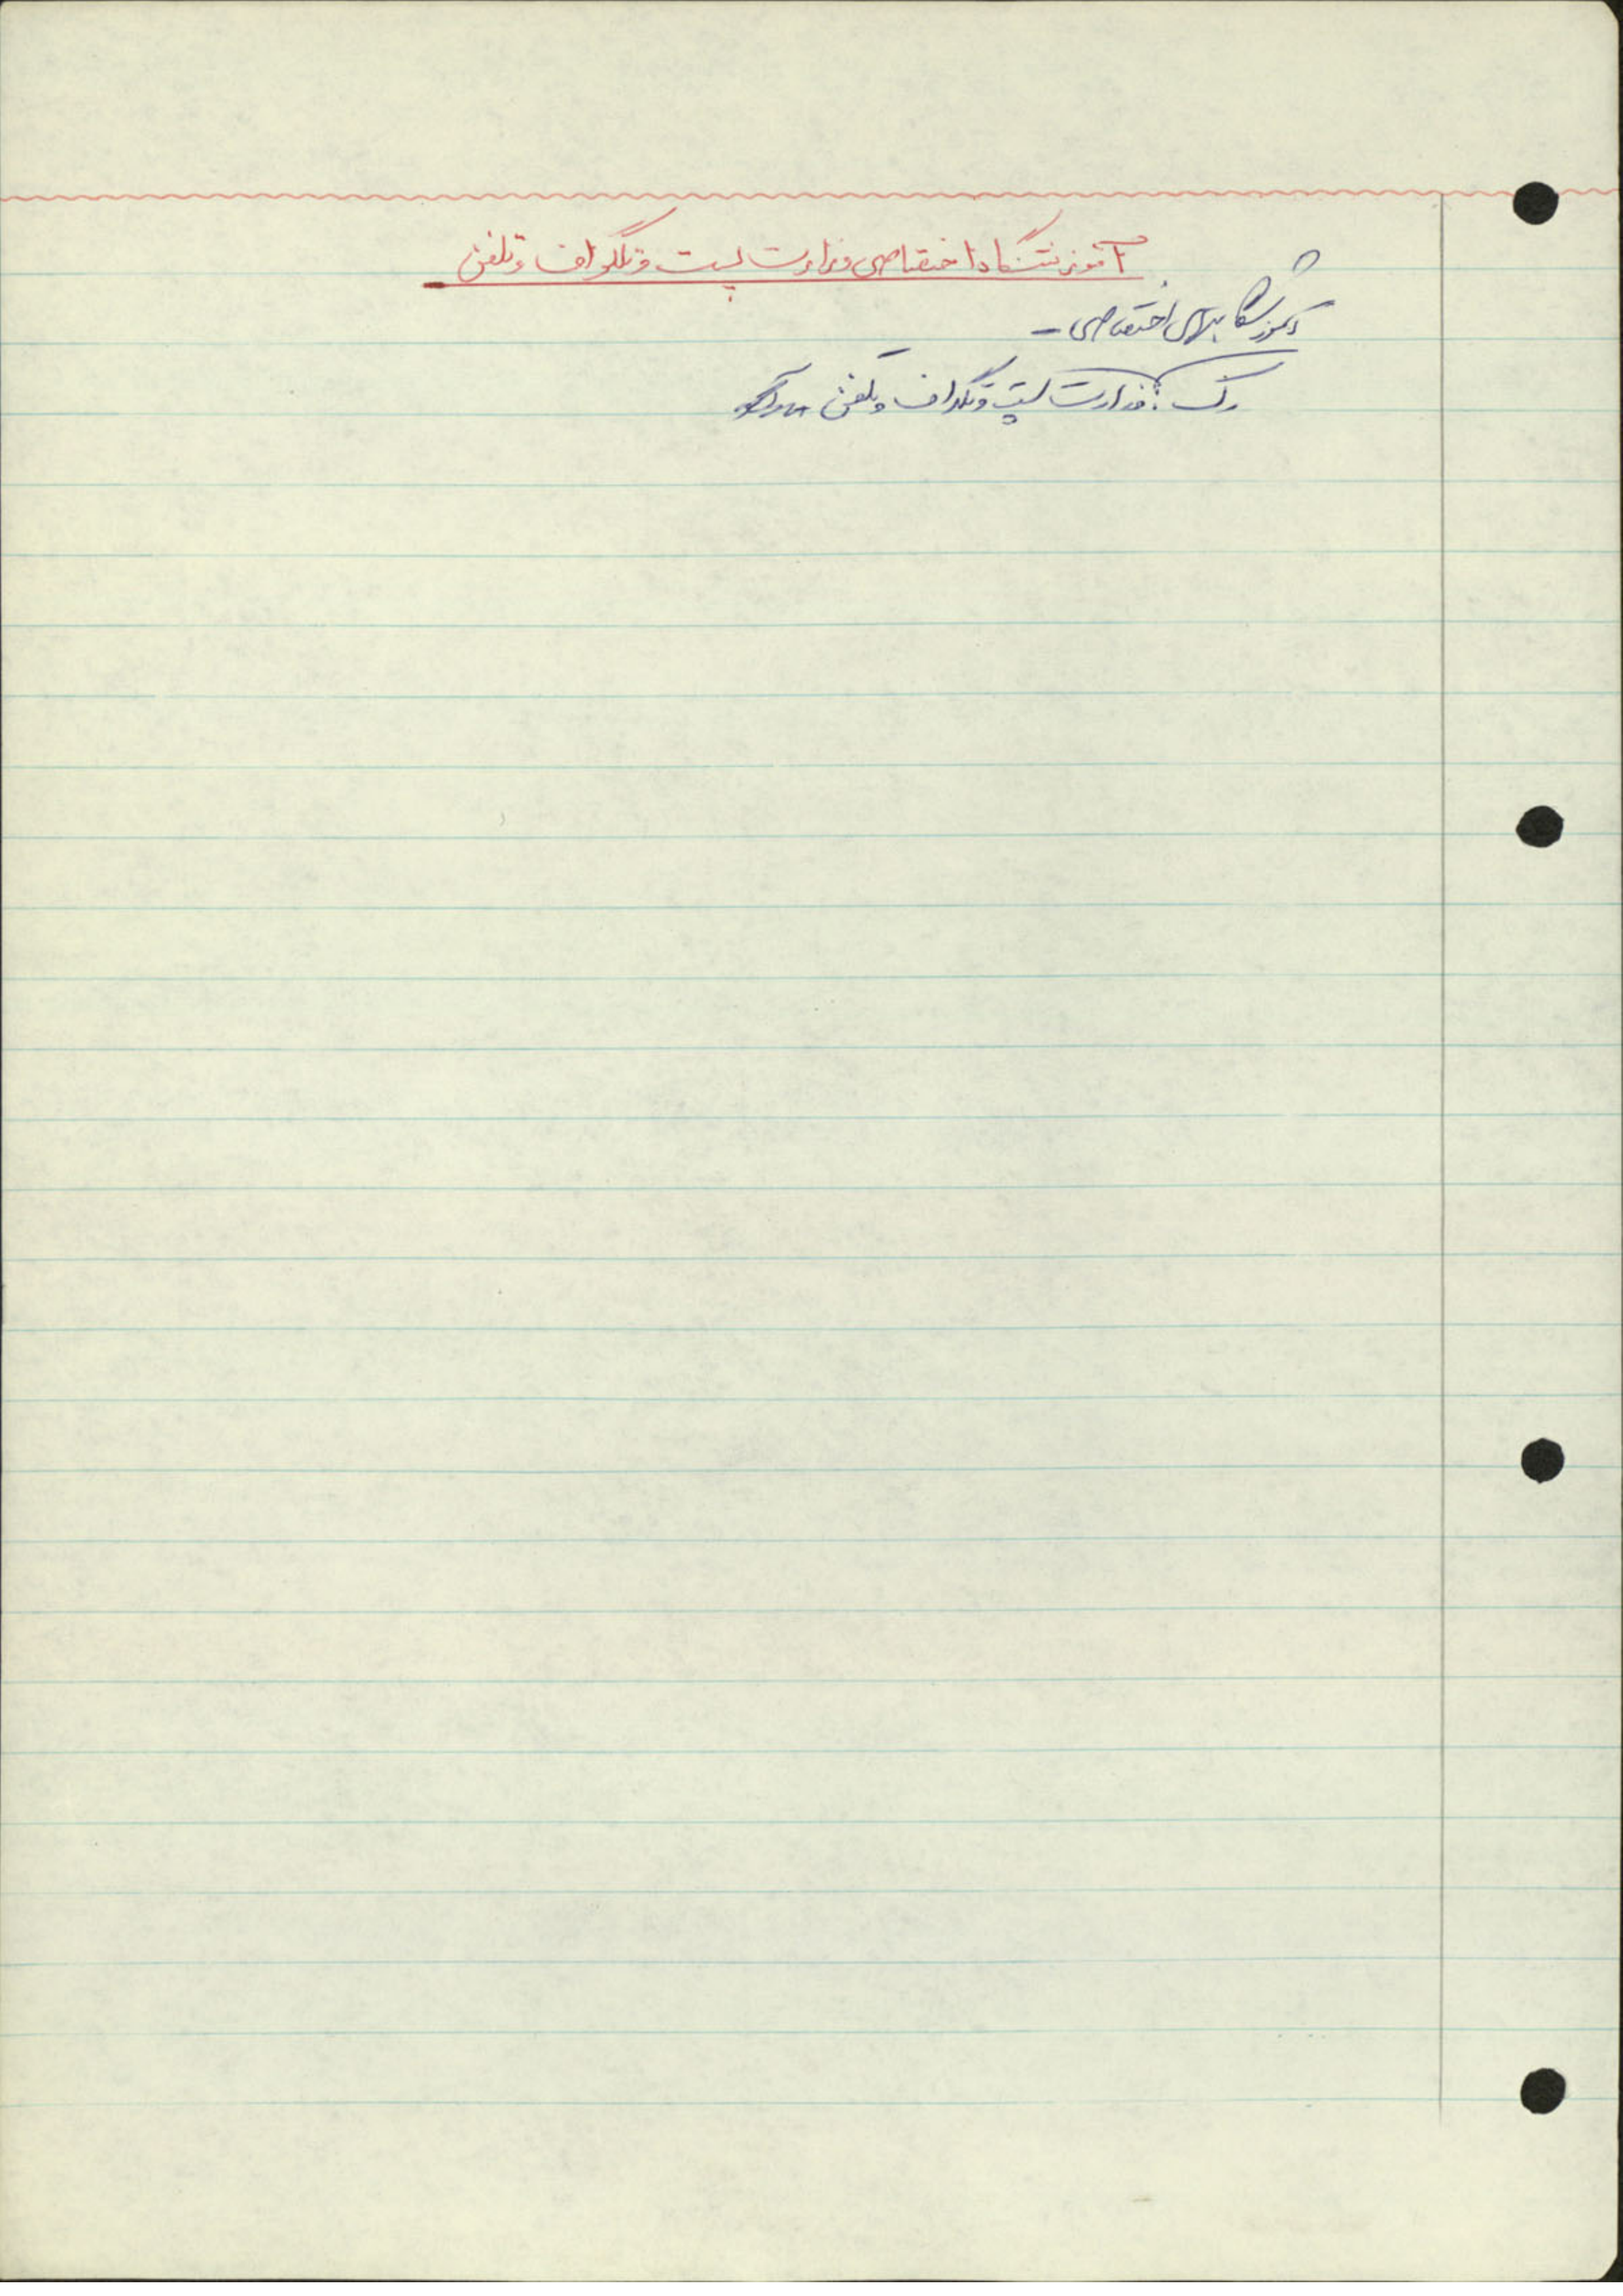 آموزشگاه اختصاصی وزارت پست و تلگراف و تلفن
آموزشگاههای اختصاصی -
رک: وزارت پست و تلگراف و تلفن